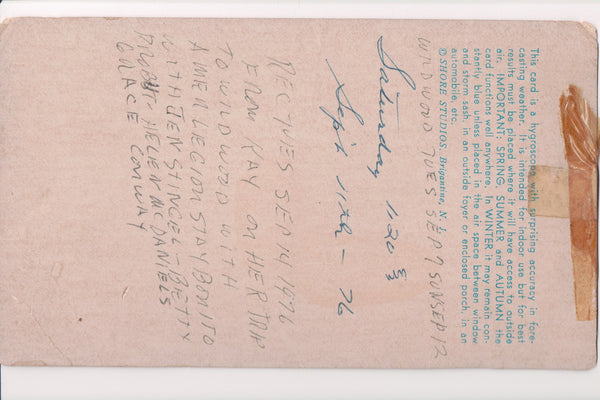 This card is a hygroscope with surprising accuracy in fore-
casting weather. It is intended for indoor use but for best
results must be placed where it will have access to outside
air. IMPORTANT: SPRING, SUMMER and AUTUMN the
card functions well anywhere. In WINTER it may remain con-
stantly blue unless placed in the air space between window
and storm sash, in an outside foyer or enclosed porch, in an
automobile, etc.
© SHORE STUDIOS, Brigantine, N. J.
WILDWOOD TUES SEP 7 SUN SEP 12
Saturday 1:20
Sept 11th - 76
RECTVES SEP 14 1976
FROM KAY ON HER TRIP
TO WILDWOOD WITH
AMER LEGION STAY BONITO
WITH JEN STINGEL - BETTY
HELEN McDANIELS
GRACE CONWAY